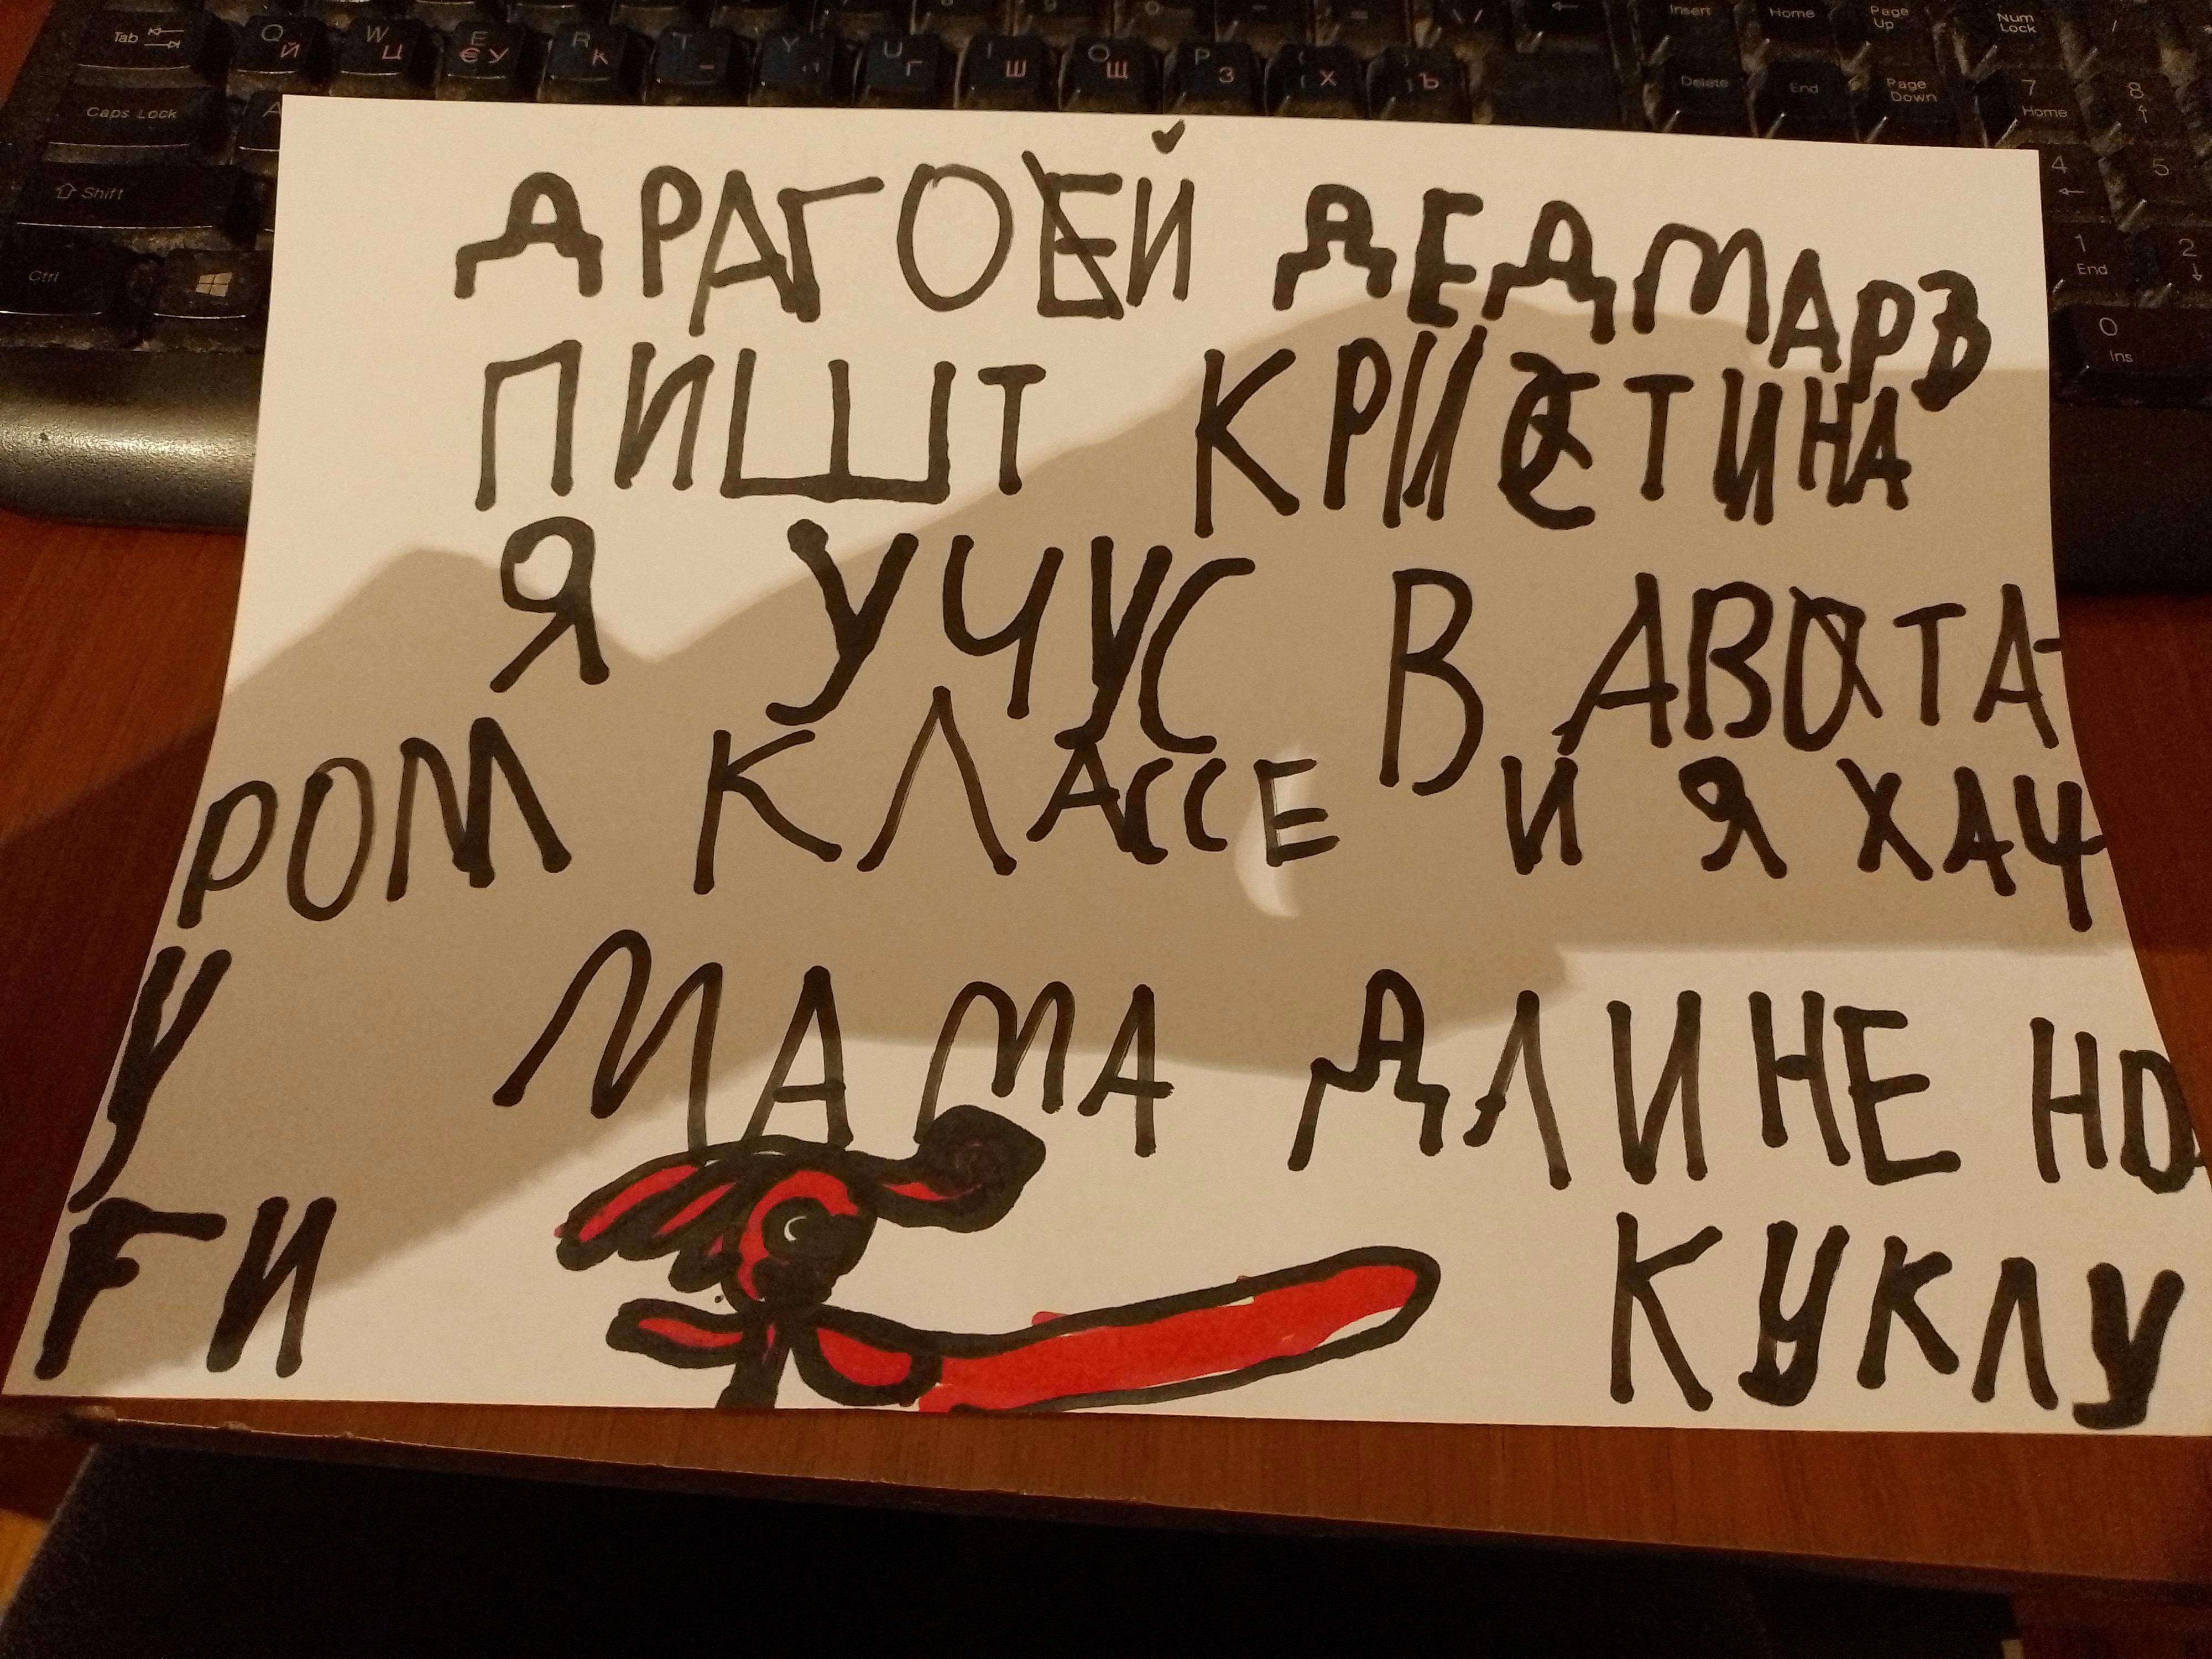 Tab Q Й W Ц E € У R К T Y U Г I Ш O Щ P З Х Ъ Insert Home Page Up Num Lock /
Caps Lock A Delete End Page Down 7 Home 8
Shift 4 5
Ctrl 1 End 2
0 Ins
ДРАГОЙ ДЕДМАРЗ
ПИШТ КРИСТИНА
Я УЧУС В АВОТА-
РОМ КЛАССЕ И Я ХАЧ-
У МАМА ДЛИНЕ НО
ГИ КУКЛУ